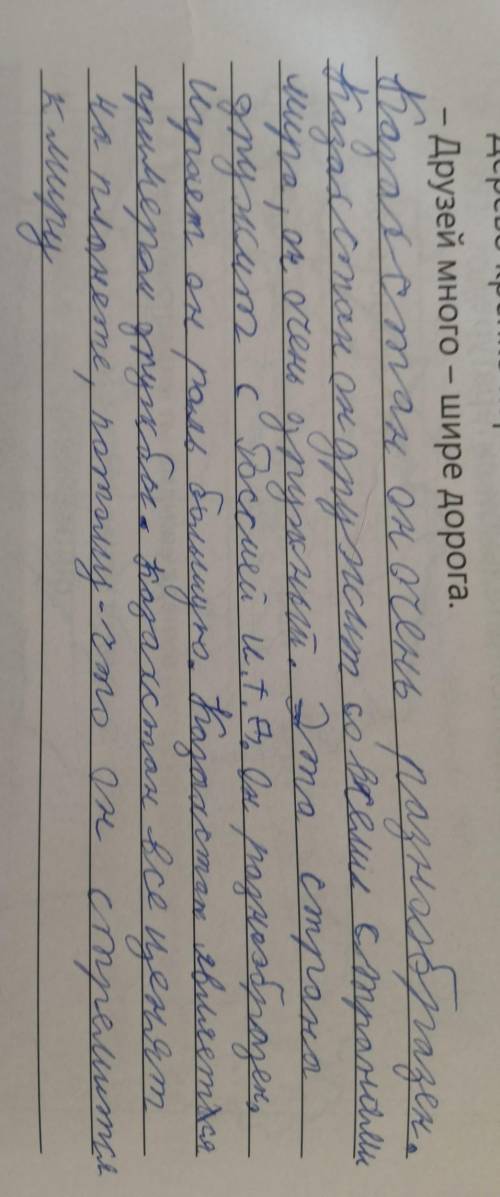 – Друзей много – шире дорога.
Казахстан он очень разнообразен.
Казахстан он дружит со всеми странами
мира, он очень дружный. Это страна
дружит с Россией и.т.д. Он разнообразен,
играет он роль большую. Казахстан является
примером дружбы. Казахстан все ценят
на планете, потому-что он стремится
к миру